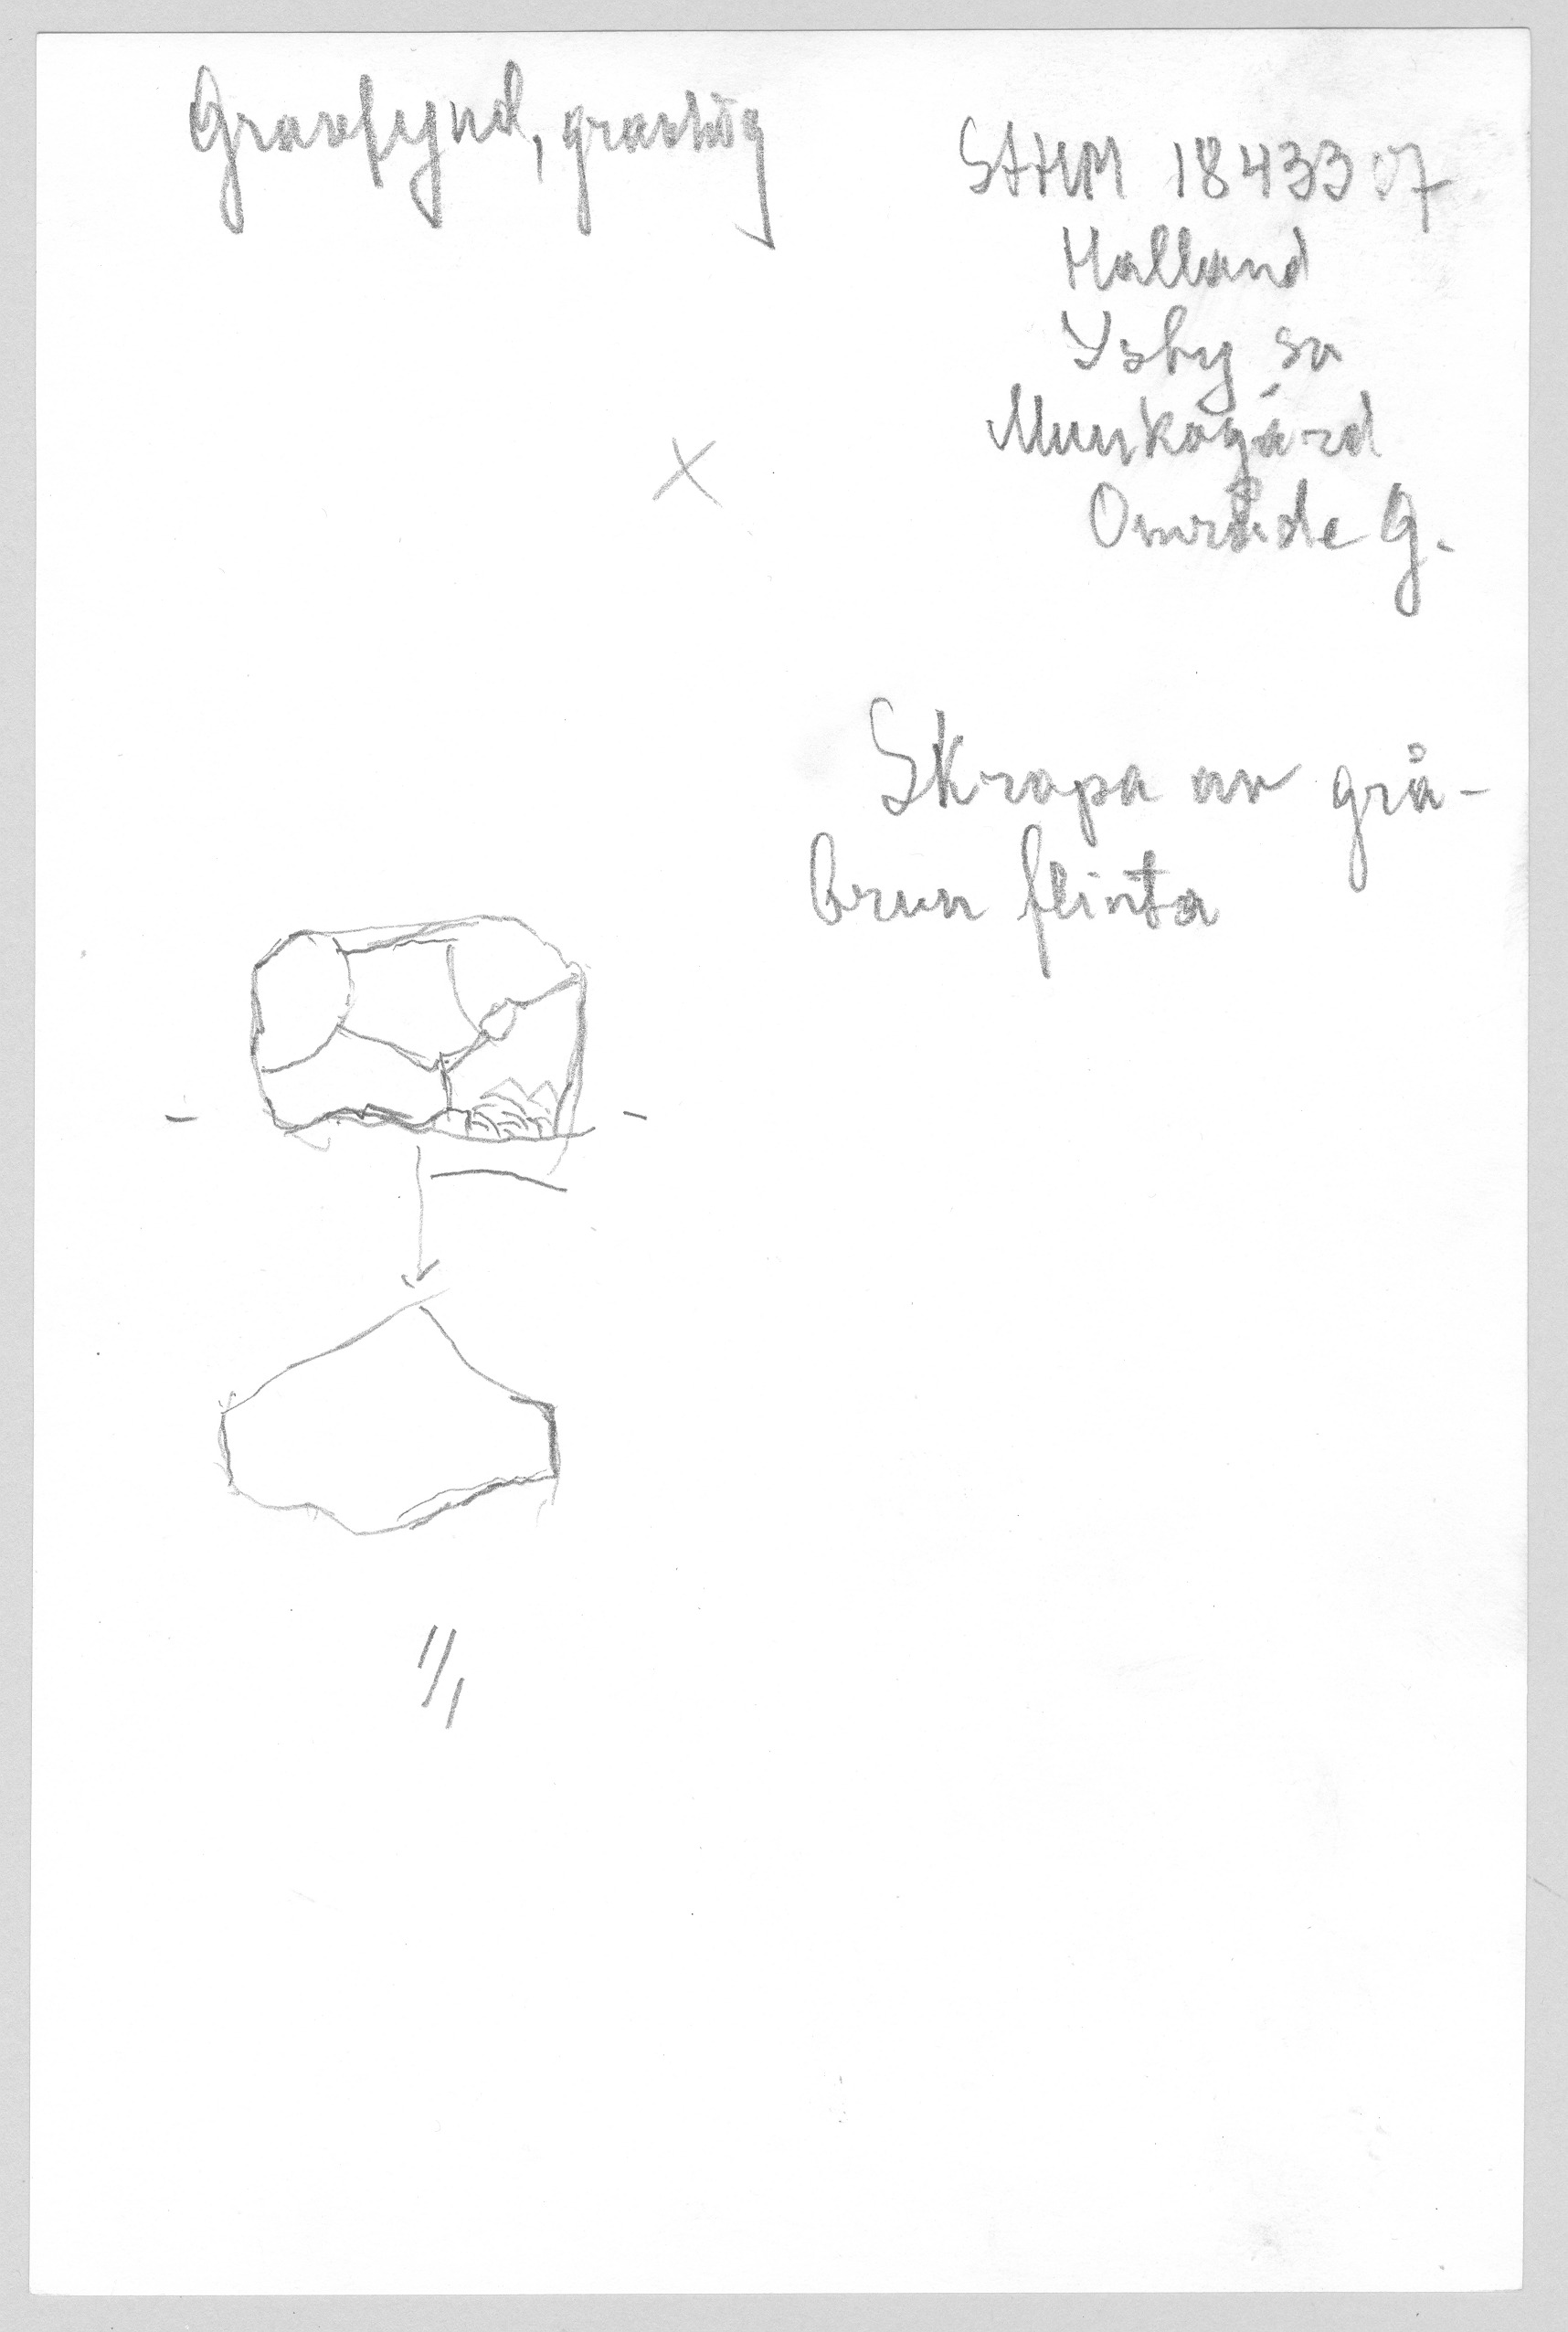 Gravfynd, gravhög
SHM 18433:07
Halland
Ysby sn
Munkagård
Område G.
Skrapa av grå-
brun flinta
1/1